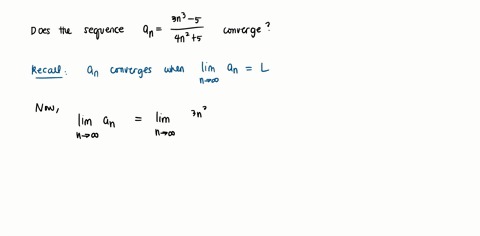 Does the sequence aₙ = (3n³ − 5)/(4n² + 5) converge?
Recall: aₙ converges when lim n→∞ aₙ = L
Now,
lim n→∞ aₙ = lim n→∞ 3n³